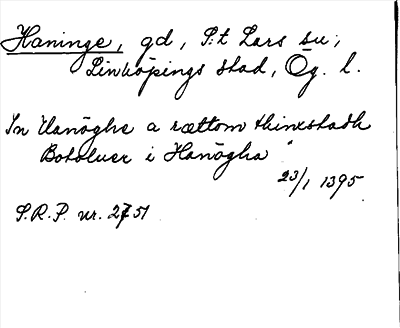 Haninge, gd, S:t Lars su;
Linköpings stad, Ög. l.
In Hanøghe a rættom thinxstadh
Botoluer i Hanøgha"
23/1 1395
S.R.P. nr. 2751